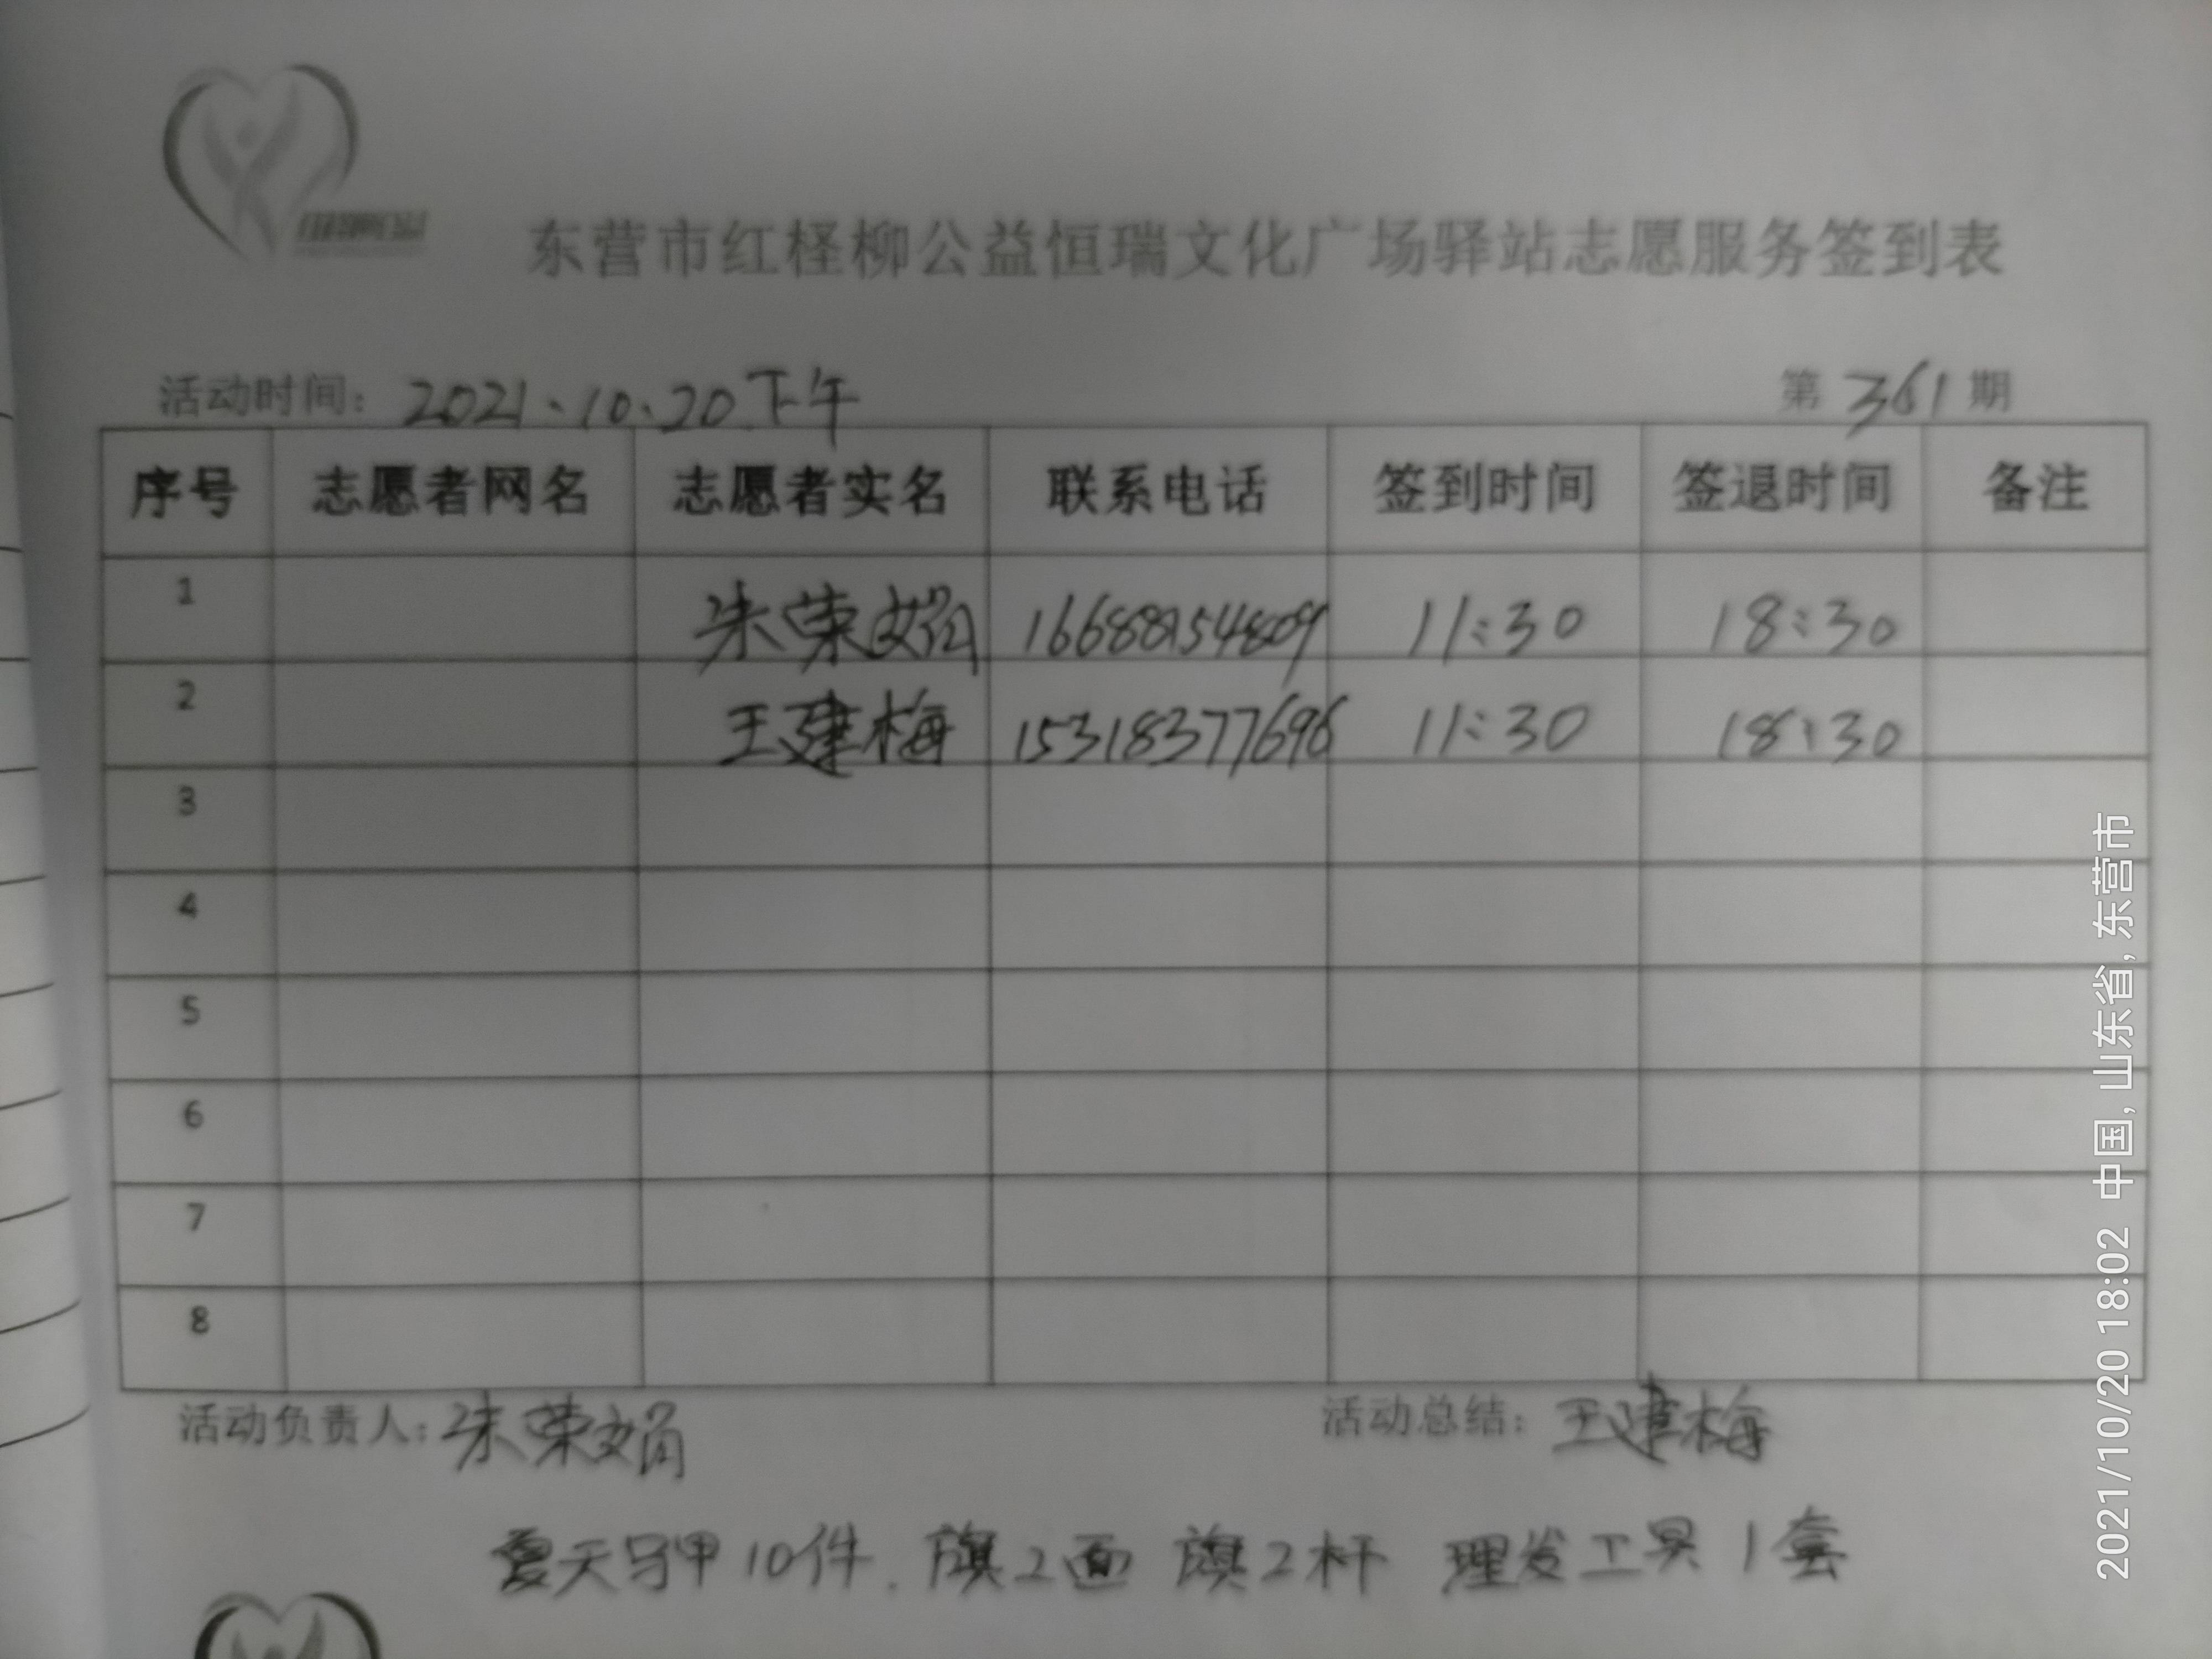 东营市红柽柳公益恒瑞文化广场驿站志愿服务签到表
活动时间：2021.10.20下午 第361期
序号 志愿者网名 志愿者实名 联系电话 签到时间 签退时间 备注
1 朱荣娟 16688954809 11:30 18:30
2 王建梅 15318377696 11:30 18:30
3
4
5
6
7
8
活动负责人：朱荣娟 活动总结：王建梅
夏天马甲10件．旗2面 旗2杆 理发工具1套
2021/10/20 18:02 中国, 山东省, 东营市